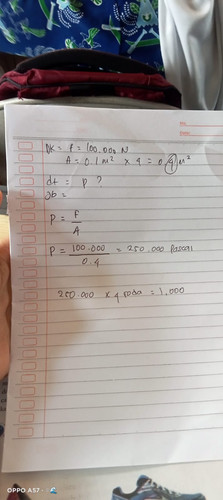 No.
Date.
dk = F = 100.000 N
A = 0.1 m² x 4 = 0.4 m²
dt = P ?
Jb =
P = F / A
P = 100.000 / 0.4 = 250.000 Pascal
250.000 x 4 roda = 1,000
OPPO A57